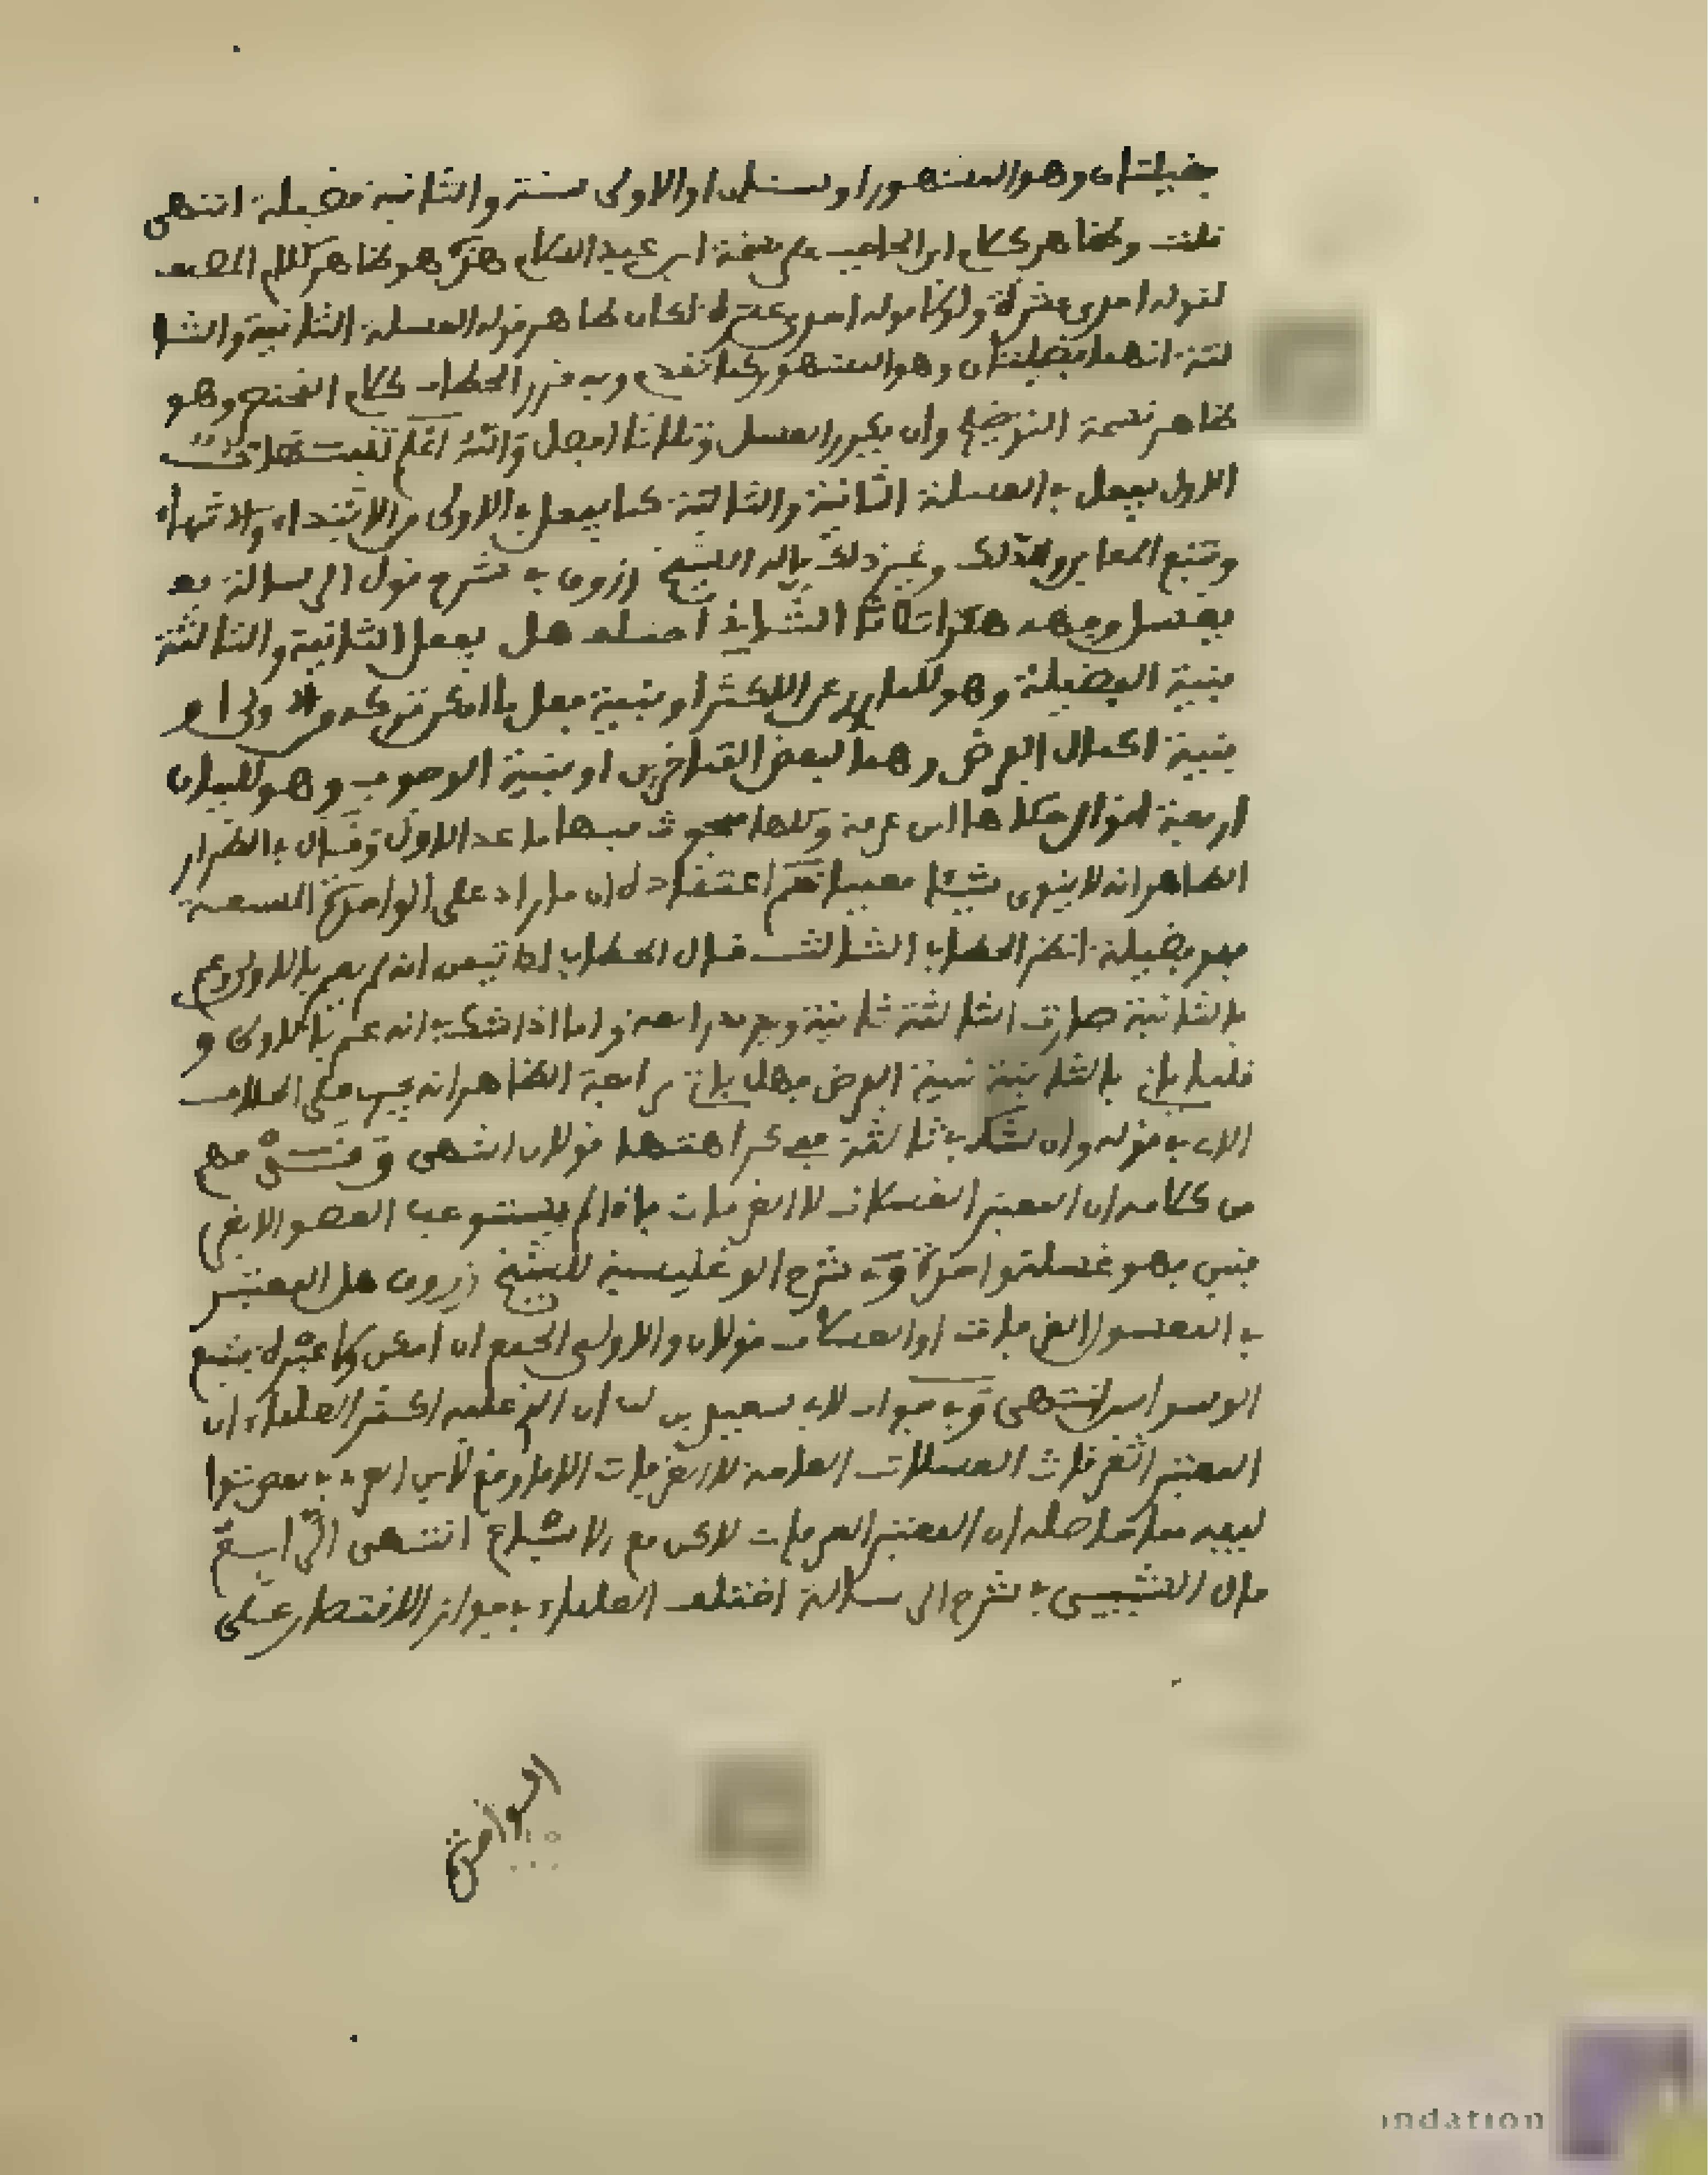 فضيلتان وهو المشهور او سنتان او الاولى سنة والثانية فضيلة انتهى
قلت وظاهر كلام ابن الحاجب على نسخة ابن عبد السلام هذه هو ظاهر كلام المصنف
لقوله احدى عشرة ولولا قوله احدى عشرة لكان ظاهر قوله الغسلة الثانية والثا
لثة انهما فضيلتان وهو المشهور كما تقدم وبه قرر الحطاب كلام الفتح وهو
ظاهر نسخة التوضيح وان يكرر الغسل وثلاثا افضل والله اعلم
الاول يفعل في الغسلة الثانية والثالثة كما يفعل في الاولى من الابتداء والانتهاء
وتتبع المغابن والدلك وغير ذلك قاله الشيخ زروق في شرح قول الرسالة
يغسل وجهه هكذا ثلاثا الثاني اختلف هل يفعل الثانية والثالثة
بنية الفضيلة وهو للمازري عن الاكثر او بنية فعل ما امكن تركه من الاولى او
بنية اكمال الفرض وهما لبعض المتاخرين او بنية الوجوب وهو للبيان
اربعة اقوال حكاها ابن عرفة وكلها مبحوث فيها ما عدا الاول وقال في الطراز
الظاهر انه لا ينوي شيئا معينا نعم اعتقاده ان ما زاد على الواحدة المسبغة
فهو فضيلة انظر الحطاب الثالث قال الحطاب اذا تيقن انه لم يعم بالاولى وعم
بالثانية صارت الثالثة ثانية ويزيد رابعة واما اذا شك في انه عم بالاولى و
قلنا ياتي بالثانية بنية الفرض فهل ياتي برابعة الظاهر انه يجري على الخلاف
الاتي في قوله وان شك في ثالثة ففي كراهتها قولان انتهى
من كلامه ان المعتبر الغسلات لا الغرفات فاذا لم يستوعب العضو الا بغر
فتين فهو غسلة واحدة وفي شرح الوغليسية للشيخ زروق هل المعتبر
في الغسل الغرفات او الغسلات قولان والاولى الجمع ان امكن
الوسواس انتهى وفي جواب لابي سعيد بن لب ان الذي عليه اكثر العلماء ان
المعتبر الثلاث الغسلات العامة لا الغرفات الا ما وقع لابن العربي في بعض
ما حاصله ان المعتبر الغرفات لاكن مع الاشباع انتهى الرابع
قال الشبيبي في شرح الرسالة اختلف العلماء في جواز الاقتصار على
الواحدة
ondation